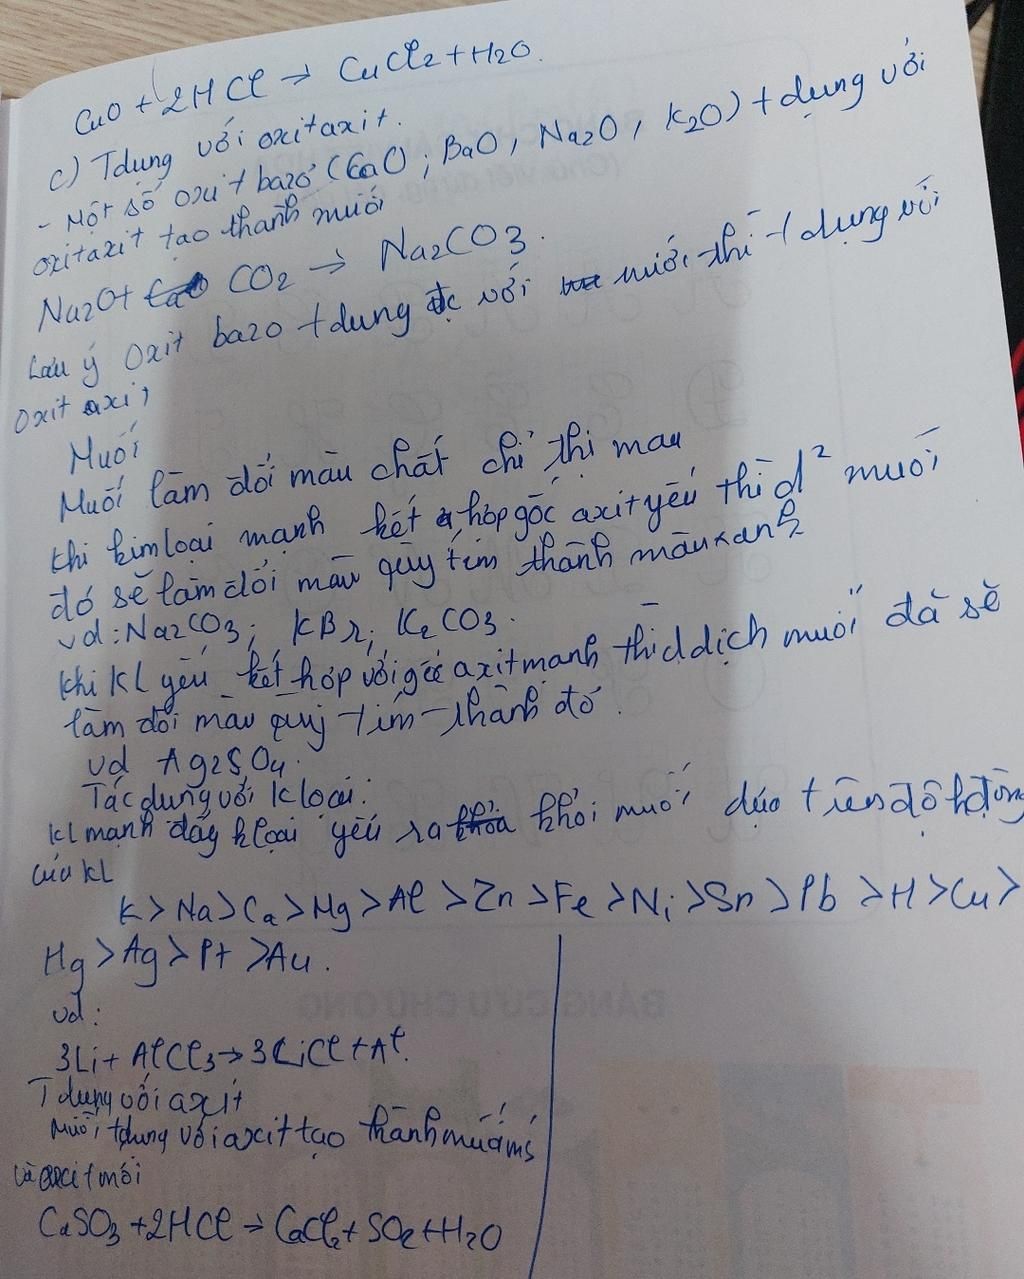 CuO + 2HCl → CuCl2 + H2O.
c) Tdụng với oxitaxit.
- Một số oxit bazơ (CaO; BaO, Na2O, K2O) tdụng với
oxitaxit tạo thành muối
Na2O + CO2 → Na2CO3.
Lưu ý oxit bazo tdung đc với nước thì tdụng với
oxit axit
Muối
Muối làm đổi màu chất chỉ thị mau
khi kim loại mạnh kết hợp gốc axit yếu thì d² muối
đó sẽ làm đổi màu quỳ tím thành màu xanh
vd: Na2CO3; KBr; K2CO3.
khi KL yếu kết hợp với gốc axit mạnh thì d dịch muối đã sẽ
làm đổi màu quỳ tím thành đỏ.
vd Ag2SO4.
Tác dụng với k loại:
kl mạnh đẩy kloại yếu ra khỏi muối dựa trên độ hđộng
của KL
K > Na > Ca > Mg > Al > Zn > Fe > Ni > Sn > Pb > H > Cu >
Hg > Ag > Pt > Au.
vd:
3Li + AlCl3 → 3LiCl + Al.
T dụng với axit
Muối tdụng với axit tạo thành muối
và axit mới
CaSO3 + 2HCl → CaCl2 + SO2 + H2O
BẢNG CỬU CHƯƠNG